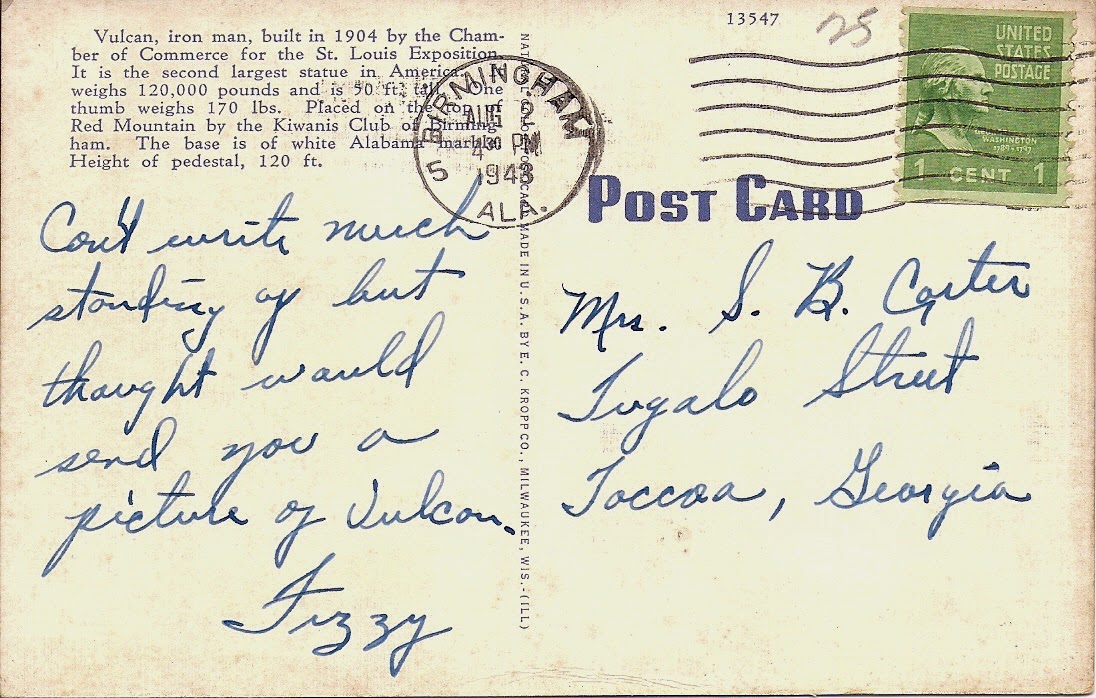 Vulcan, iron man, built in 1904 by the Cham-
ber of Commerce for the St. Louis Exposition.
It is the second largest statue in America,
weighs 120,000 pounds and is 50 ft. tall. One
thumb weighs 170 lbs. Placed on the top of
Red Mountain by the Kiwanis Club of Birming-
ham. The base is of white Alabama marble.
Height of pedestal, 120 ft.
Can't write much
standing up but
thought would
send you a
picture of Vulcan.
Fizzy
MADE IN U.S.A. BY E. C. KROPP CO., MILWAUKEE, WIS.-(ILL)
BIRMINGHAM
AUG 2
4 30 PM
1943
5
ALA.
13547
25
UNITED
STATES
POSTAGE
WASHINGTON
1789-1797
1 CENT 1
POST CARD
Mrs. S. B. Carter
Tugalo Street
Toccoa, Georgia